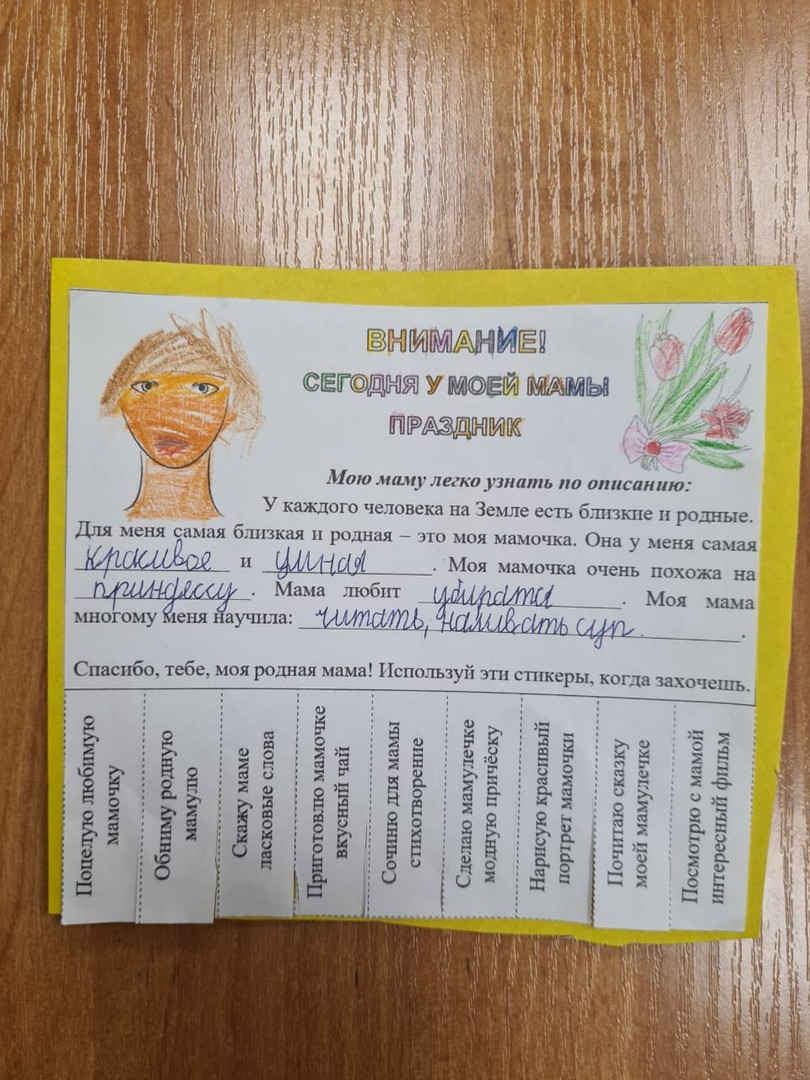 ВНИМАНИЕ!
СЕГОДНЯ У МОЕЙ МАМЫ
ПРАЗДНИК
Мою маму легко узнать по описанию:
У каждого человека на Земле есть близкие и родные.
Для меня самая близкая и родная – это моя мамочка. Она у меня самая
красивое и умная. Моя мамочка очень похожа на
принцессу. Мама любит убиратся. Моя мама
многому меня научила: читать, наливать суп.
Спасибо, тебе, моя родная мама! Используй эти стикеры, когда захочешь.
Поцелую любимую
мамочку
Обниму родную
мамулю
Скажу маме
ласковые слова
Приготовлю мамочке
вкусный чай
Сочиню для мамы
стихотворение
Сделаю мамулечке
модную причёску
Нарисую красивый
портрет мамочки
Почитаю сказку
моей мамулечке
Посмотрю с мамой
интересный фильм